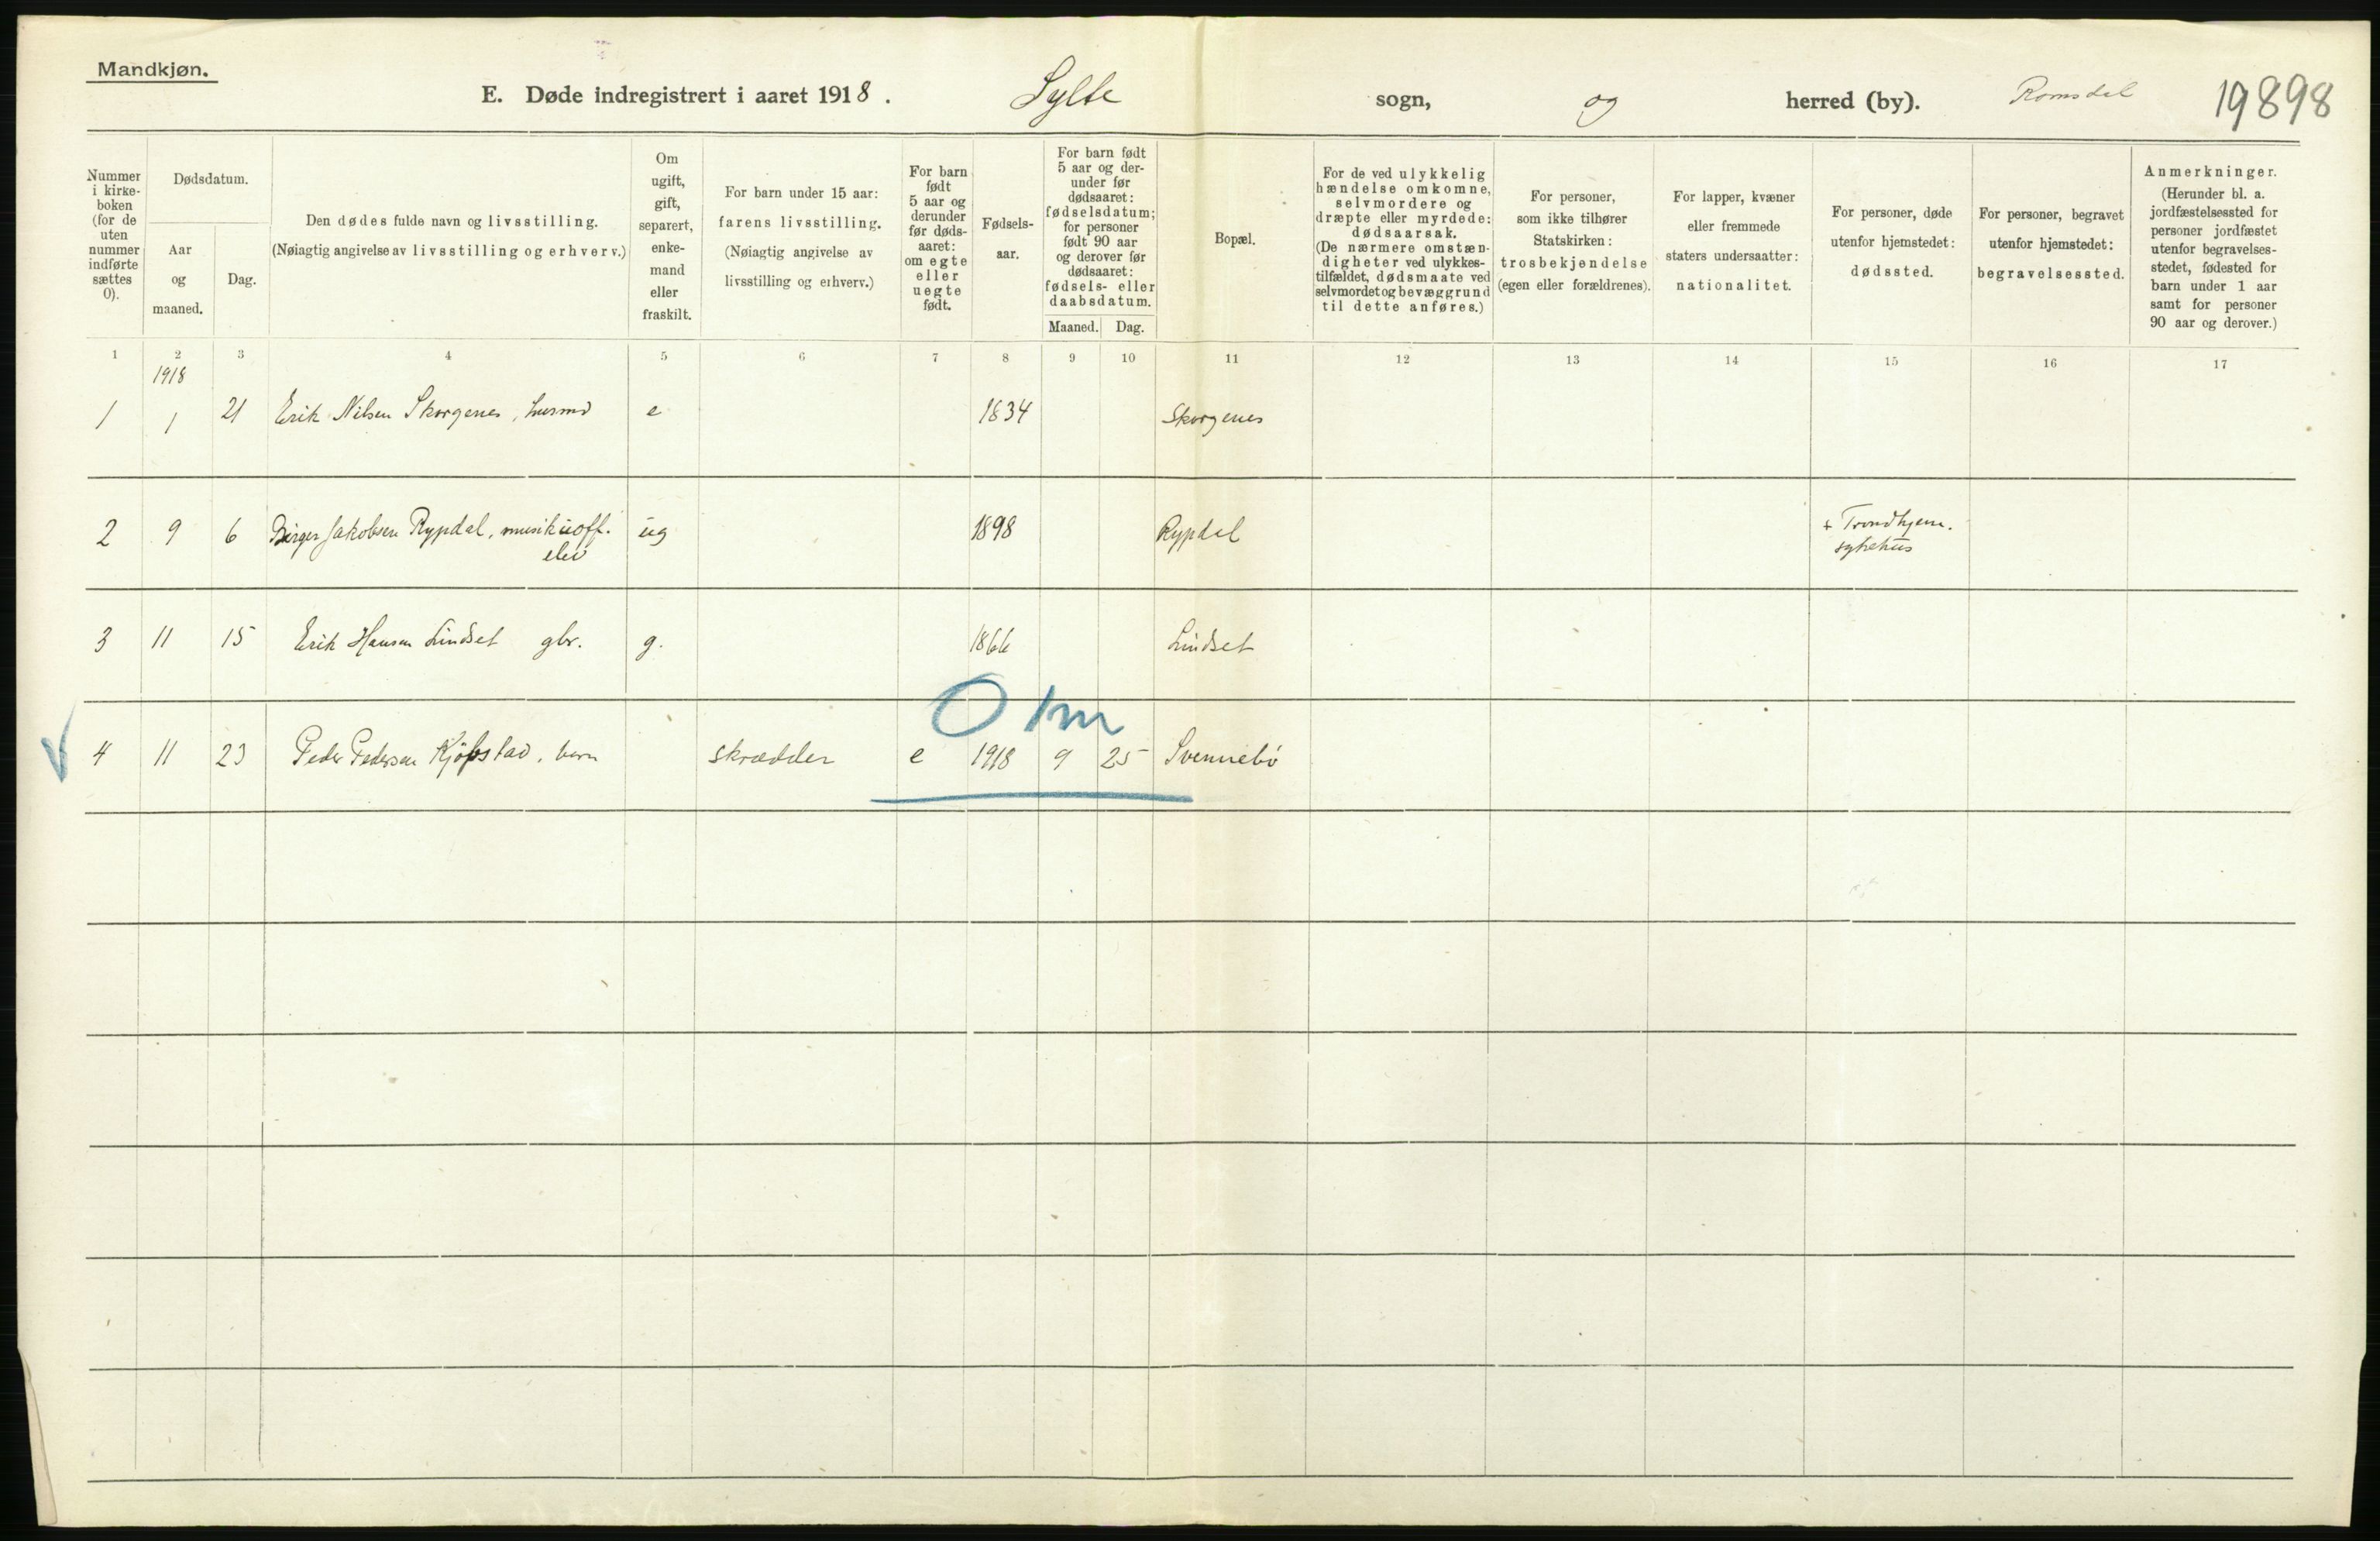 Mandkjøn.
E. Døde indregistrert i aaret 1918. Sylte sogn, og herred (by). Romsdal 19898
Nummer i kirke- boken (for de uten nummer indførte sættes 0).
Dødsdatum.
Aar og maaned.
Dag.
Den dødes fulde navn og livsstilling.
(Nøiagtig angivelse av livsstilling og erhverv.)
Om ugift, gift, separert, enke- mand eller fraskilt.
For barn under 15 aar: farens livsstilling. (Nøiagtig angivelse av livsstilling og erhverv.)
For barn født 5 aar og derunder før døds- aaret: om egte eller uegte født.
Fødsels- aar.
For barn født 5 aar og der- under før dødsaaret: fødselsdatum; for personer født 90 aar og derover før dødsaaret: fødsels- eller daabsdatum.
Maaned. Dag.
Bopæl.
For de ved ulykkelig hændelse omkomne, selvmordere og dræpte eller myrdede: dødsaarsak. (De nærmere omstæn- digheter ved ulykkes- tilfældet, dødsmaate ved selvmordet og bevæggrund til dette anføres.)
For personer, som ikke tilhører Statskirken: trosbekjendelse (egen eller forældrenes).
For lapper, kvæner eller fremmede staters undersaatter: nationalitet.
For personer, døde utenfor hjemstedet: dødssted.
For personer, begravet utenfor hjemstedet: begravelsessted.
Anmerkninger. (Herunder bl. a. jordfæstelsessted for personer jordfæstet utenfor begravelses- stedet, fødested for barn under 1 aar samt for personer 90 aar og derover.)
1 2 3 4 5 6 7 8 9 10 11 12 13 14 15 16 17
1918
1 1 21 Erik Nilsen Skorgenes, husmd e 1834 Skorgenes
2 9 6 Birger Jakobsen Rypdal, musikuoff. ug 1898 Rypdal + Trondhjem.
elev sykehus
3 11 15 Erik Hansen Lindset gbr. g. 1866 Lindset
0 1m
4 11 23 Peder Pedersen Kjøpstad, barn skrædder e 1918 9 25 Svennebø